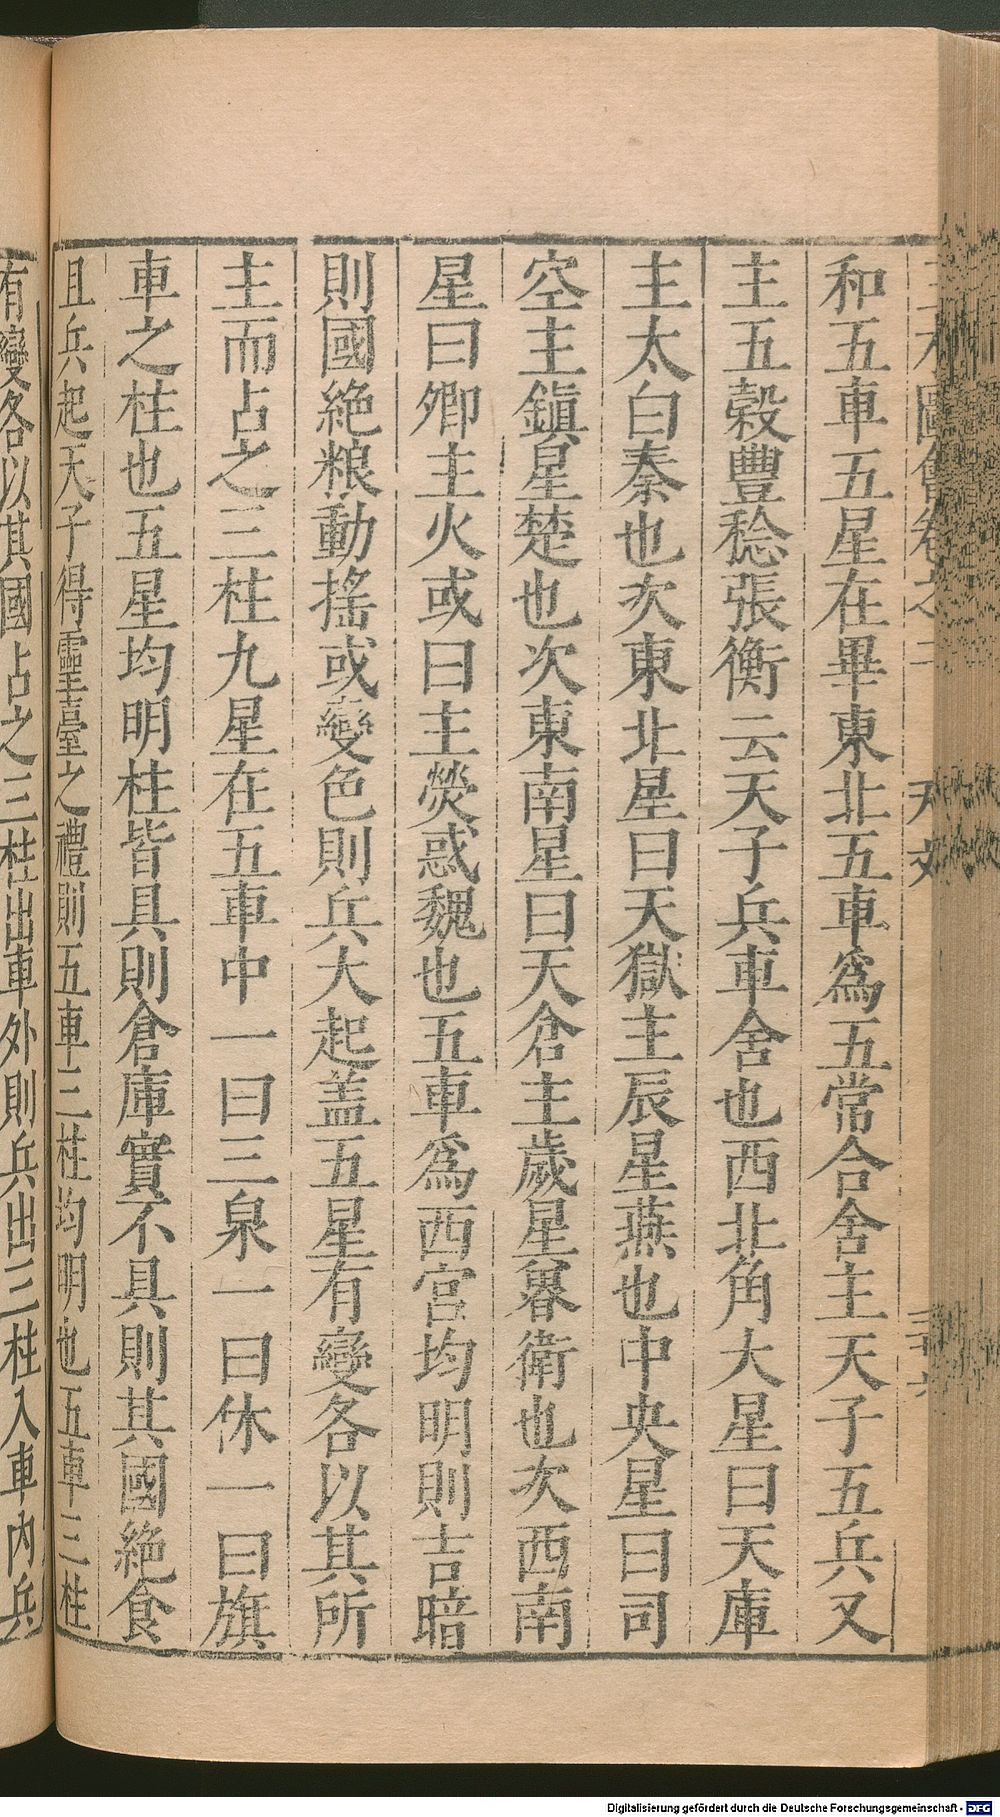 三才圖會卷之 天文
和五車五星在畢東北五車為五常合舍主天子五兵又
主五穀豐稔張衡云天子兵車舍也西北角大星曰天庫
主太白秦也次東北星曰天獄主辰星燕也中央星曰司
空主鎮星楚也次東南星曰天倉主歲星魯衛也次西南
星曰卿主火或曰主熒惑魏也五車為西宮均明則吉暗
則國絕粮動搖或變色則兵大起盖五星有變各以其所
主而占之三柱九星在五車中一曰三泉一曰休一曰旗
車之柱也五星均明柱皆具則倉庫實不具則其國絕食
且兵起天子得靈臺之禮則五車三柱均明也五車三柱
有變各以其國占之三柱出車外則兵出三柱入車內兵
Digitalisierung gefördert durch die Deutsche Forschungsgemeinschaft - DFG